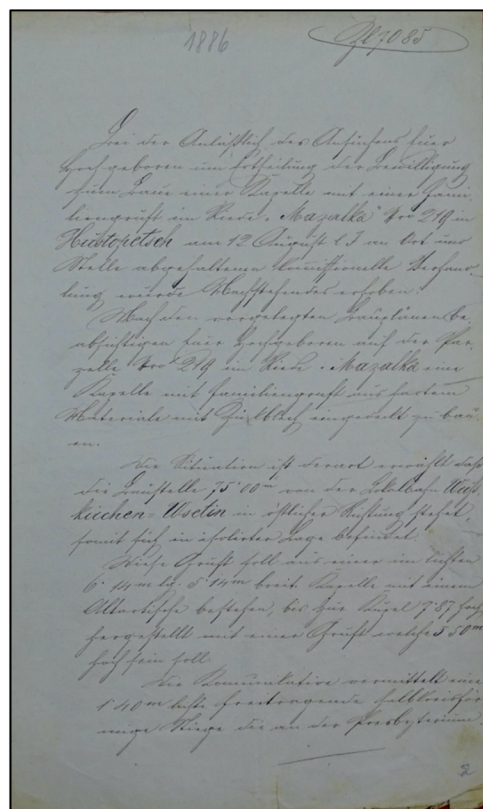 1886
Zl 7085
Bei der Anläßlich des Ansuchens Euer
Hochgeboren um Ertheilung der Bewilligung
zum Baue einer Kapelle mit einer Fami-
liengruft im Riede „Mazalka" Nro 219 in
Hustopetsch am 12 August l J an Ort und
Stelle abgehaltenen kommissionelle Verhand-
lung wurde Nachstehendes erhoben:
Nach den vorgelegten Bauplänen be-
absichtigen Euer Hochgeboren auf der Par-
zelle Nro 219 im Riede „Mazalka eine
Kapelle mit Familiengruft aus hartem
Materiale mit Zinkblech eingedeckt zu bau-
en.
Die Situation ist derart gewählt daß
die Baustelle 75·00m von der Lokalbahn Weiß-
kirchen-Wsetin in östlicher Richtung stehet,
somit sich in isolierter Lage befindet.
Diese Gruft soll aus einer im lichten
6·14m lg. 5·14m breit Kapelle mit einem
Altartische bestehen, bis zur Kugel 7·87 hoch
hergestellt mit einer Gruft welche 3 50m
hoch sein soll
Die Komunikation vermittelt eine
1·40m breite freitragende halbkreisför
mige Stiege die an der Presbyterium
2